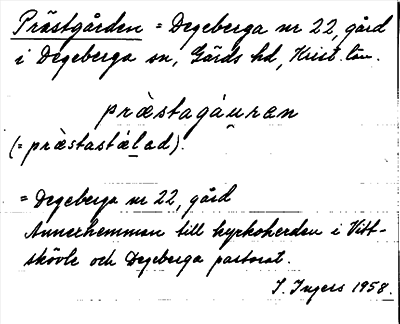 Prästgården = Degeberga nr 22, gård
i Degeberga sn, Gärds hd, Krist. län.
præ̀stagáu̯ran
(= præ̀stastæ̀lad).
= Degeberga nr 22, gård
Annerhemman till kyrkoherden i Vitt-
skövle och Degeberga pastorat.
I. Ingers 1958.